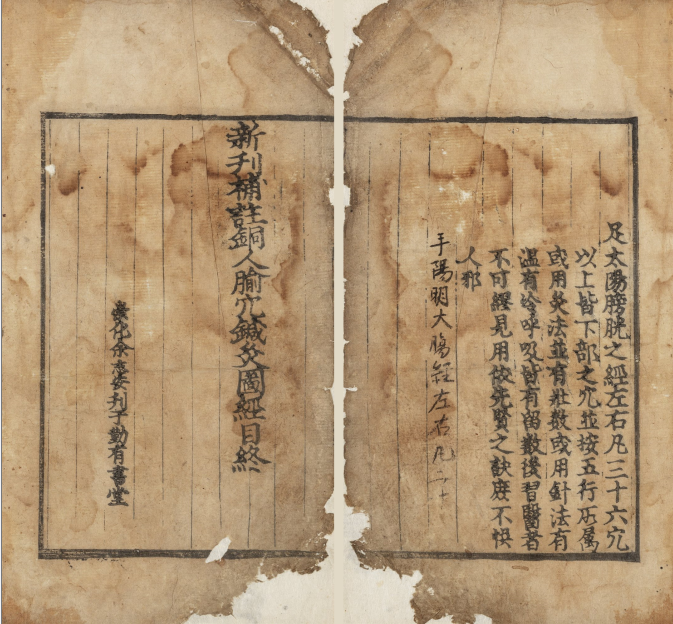 足太陽膀胱之經左右凡三十六穴
以上皆下部之穴並按五行所屬
或用灸法並有壯數或用針法有
溫有冷呼吸皆有留數後習醫者
不可見用依先賢之訣庶不悞
人邪
手陽明大腸經左右凡二十
新刊補註銅人腧穴鍼灸圖經目終
崇化余志安刊于勤有書堂